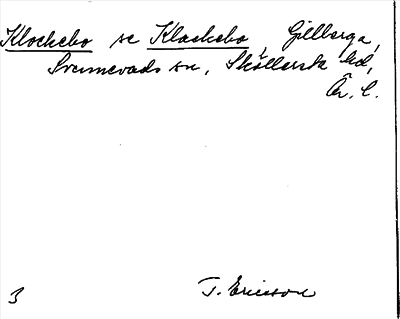 Klockebo se Klackebo, Gillberga,
Svennevads sn, Sköllersta hd,
Ör. l.
3 T. Ericsson